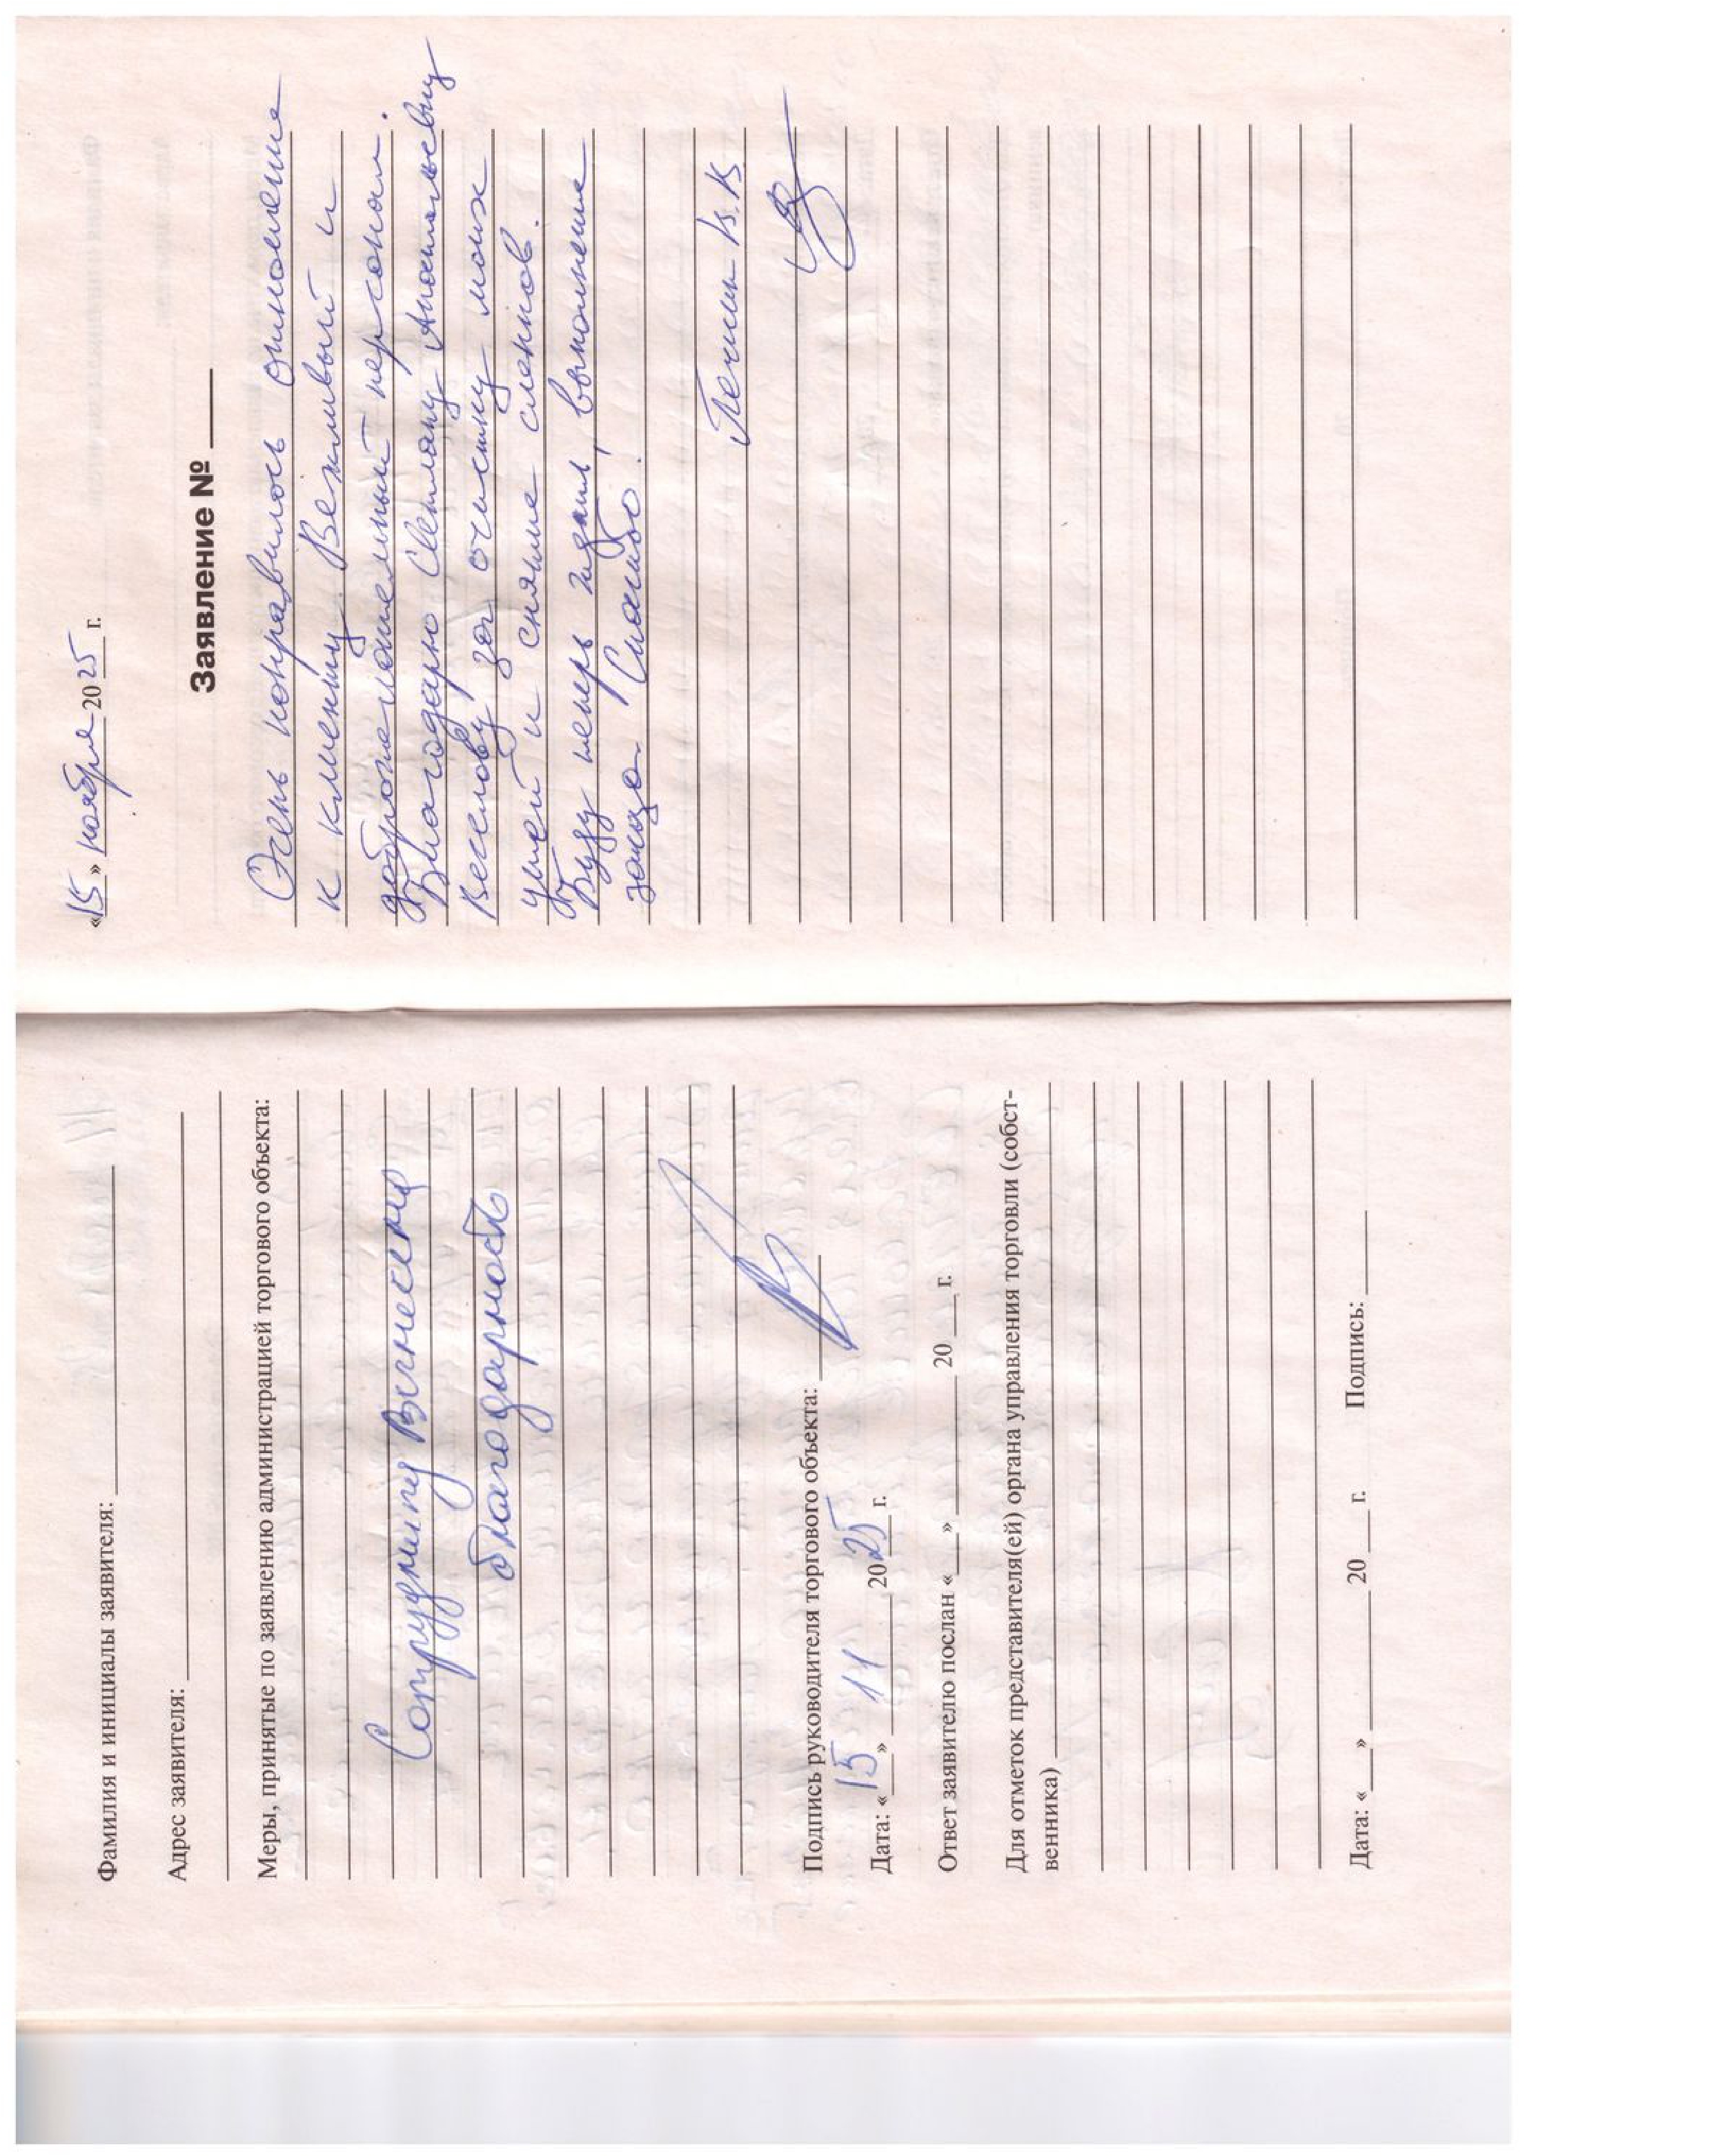 Фамилия и инициалы заявителя:
Адрес заявителя:
Меры, принятые по заявлению администрацией торгового объекта:
Сотруднику вынесена
благодарность
Подпись руководителя торгового объекта:
Дата: «15» 11 2025 г.
Ответ заявителю послан «___» ______ 20 __ г.
Для отметок представителя(ей) органа управления торговли (собст-
венника)
Дата: «___» ______ 20 __ г. Подпись:
«15» ноября 2025 г.
Заявление №
Очень понравилось отношение
к клиенту. Вежливый и
доброжелательный персонал.
Благодарю Светлану Анатольевну
Веселову за очистку моих
ушей и снятие слепков.
Буду теперь ждать выполнение
заказа. Спасибо.
Печин В.К